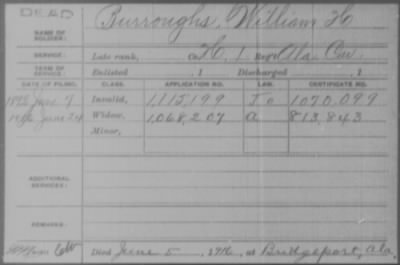 DEAD
NAME OF SOLDIER: Burroughs, William H
SERVICE: Late rank, Co H, 1 Reg't Ala. Cav.
TERM OF SERVICE: Enlisted , 1 Discharged , 1
DATE OF FILING. CLASS. APPLICATION NO. LAW. CERTIFICATE NO.
1892 June 7 Invalid, 1,115,199 1,070,099
1916 June 24 Widow, 1,068,207 a 813,843
Minor,
ADDITIONAL SERVICES:
REMARKS:
Died June 5, 1916, at Bridgeport, Ala